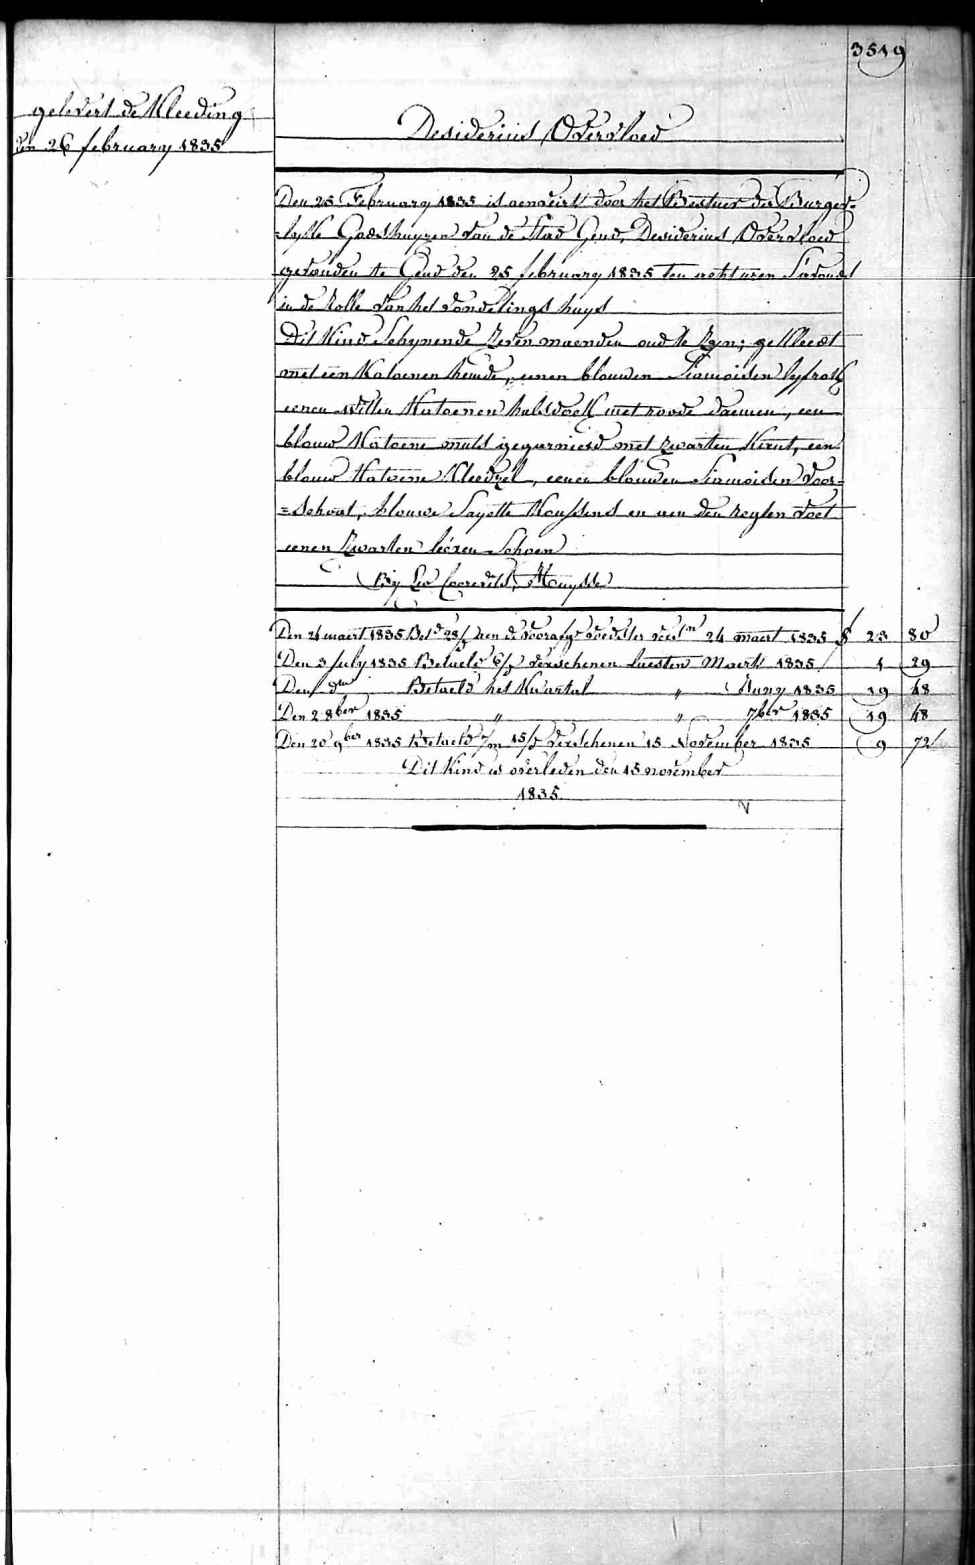 3519
gelevert de Kleeding
den 26 february 1835
Desiderius Overvloed
Den 25 February 1835 is aenveirt door het Bestuer der Burger-
=lykke Godshuyzen van de Stad Gend, Desiderius Overvloed
gevonden te Gend den 25 february 1835 ten acht uren S'avonds
in de Rolle van het vondelings huys
Dit Kind Schynende Zeven maenden oud te Zyn; gekleedt
met een Katoenen hemde, eenen blauwen Siamoisen lyfrok
eenen witten Katoenen halsdoek met roode daemen, een
blauw Katoene muts gegarnierd met Zwarten Kant, een
blauw Katoene Kleedzel, eenen blauwen Siamoisen Voor=
=schoot, blouwe Sayette Koussens en aen den regten voet
eenen Zwarten leéren Schoen
By Leo
Den 24 maert 1835 Bet.d 28/ aen de voorafg.e voedster 24 maert 1835 f 23 80
Den 3 July 1835 Betaeld 6/ verschenen laesten Maert 1835 1 29
Den d.en Betaeld het Kwartael " Juny 1835 19 48
Den 2 8ber 1835 " " 7ber 1835 19 48
Den 20 9ber 1835 Betaeld 15/ verschenen 15 November 1835 9 72
Dit Kind is overleden den 15 november
1835